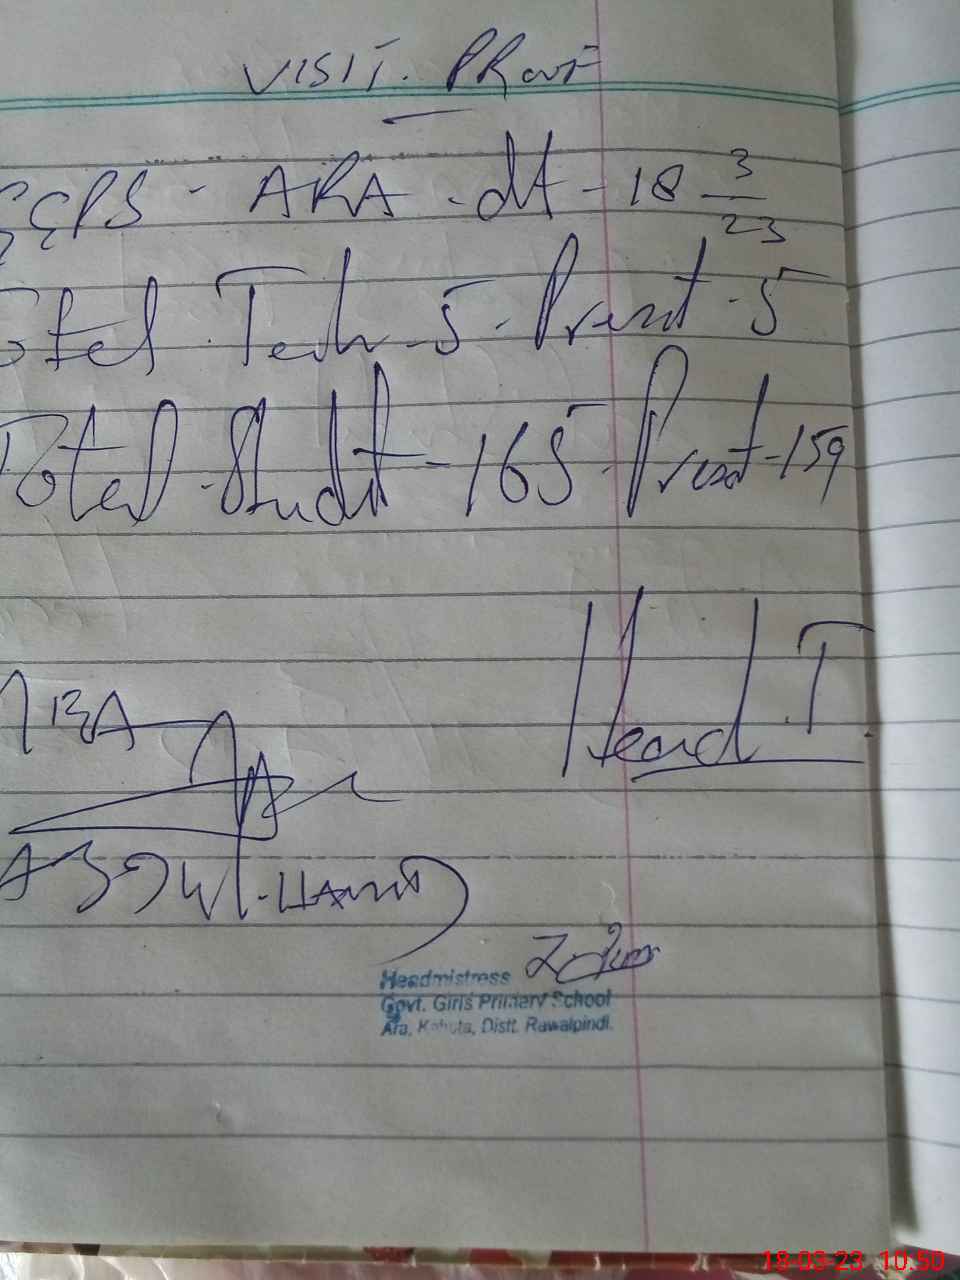 VISIT. PROOF
GGPS - ARA - dt - 18 3/23
Total Teach - 5 - Present - 5
Total - Studt - 165 - Present - 159
Head T
ABDUL HAMID
Headmistress
Govt. Girls Primary School
Ara, Kahuta, Distt. Rawalpindi.
18-03-23 10:50